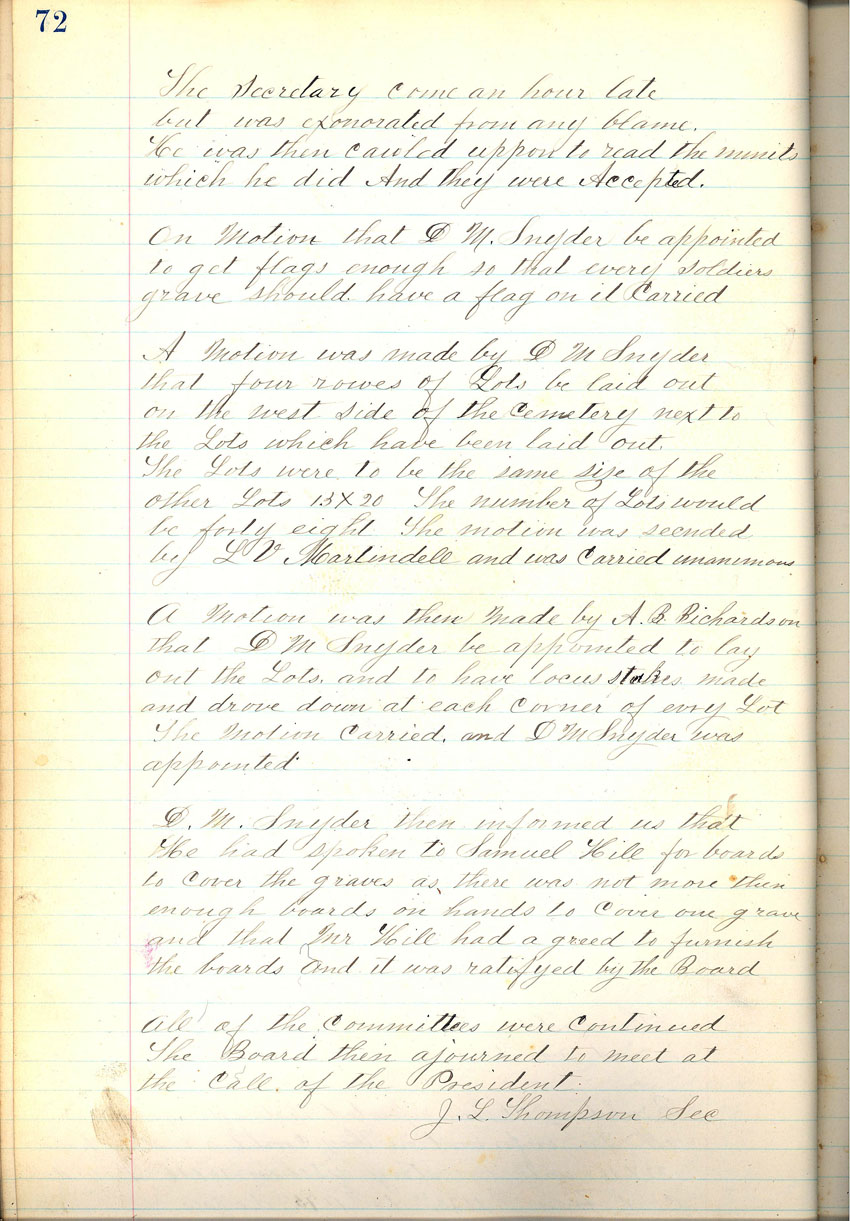 72
The Secretary come an hour late
but was exonorated from any blame.
He was then cawled uppon to read the minits
which he did And they were Accepted.
On Motion that D M. Snyder be appointed
to get flags enough so that every soldiers
grave should have a flag on it Carried
A Motion was made by D M Snyder
that four rowes of Lots be laid out
on the west side of the Cemetery next to
the Lots which have been laid out.
The Lots were to be the same size of the
other Lots 13X20 The number of Lots would
be forty eight The motion was secnded
by L V Martindell and was Carried unanimous
A Motion was then Made by A. B. Richardson
that D M Snyder be appointed to lay
out the Lots. and to have locus stakes made
and drove down at each corner of evry Lot
The Motion Carried. and D M Snyder was
appointed
D. M. Snyder then informed us that
He had spoken to Samuel Hill for boards
to cover the graves as there was not more then
enough boards on hands to cover one grave
and that Mr Hill had agreed to furnish
the boards and it was ratifyed by the Board
All of the Committees were Continued
The Board then ajourned to meet at
the Call of the President.
J. L. Thompson Sec